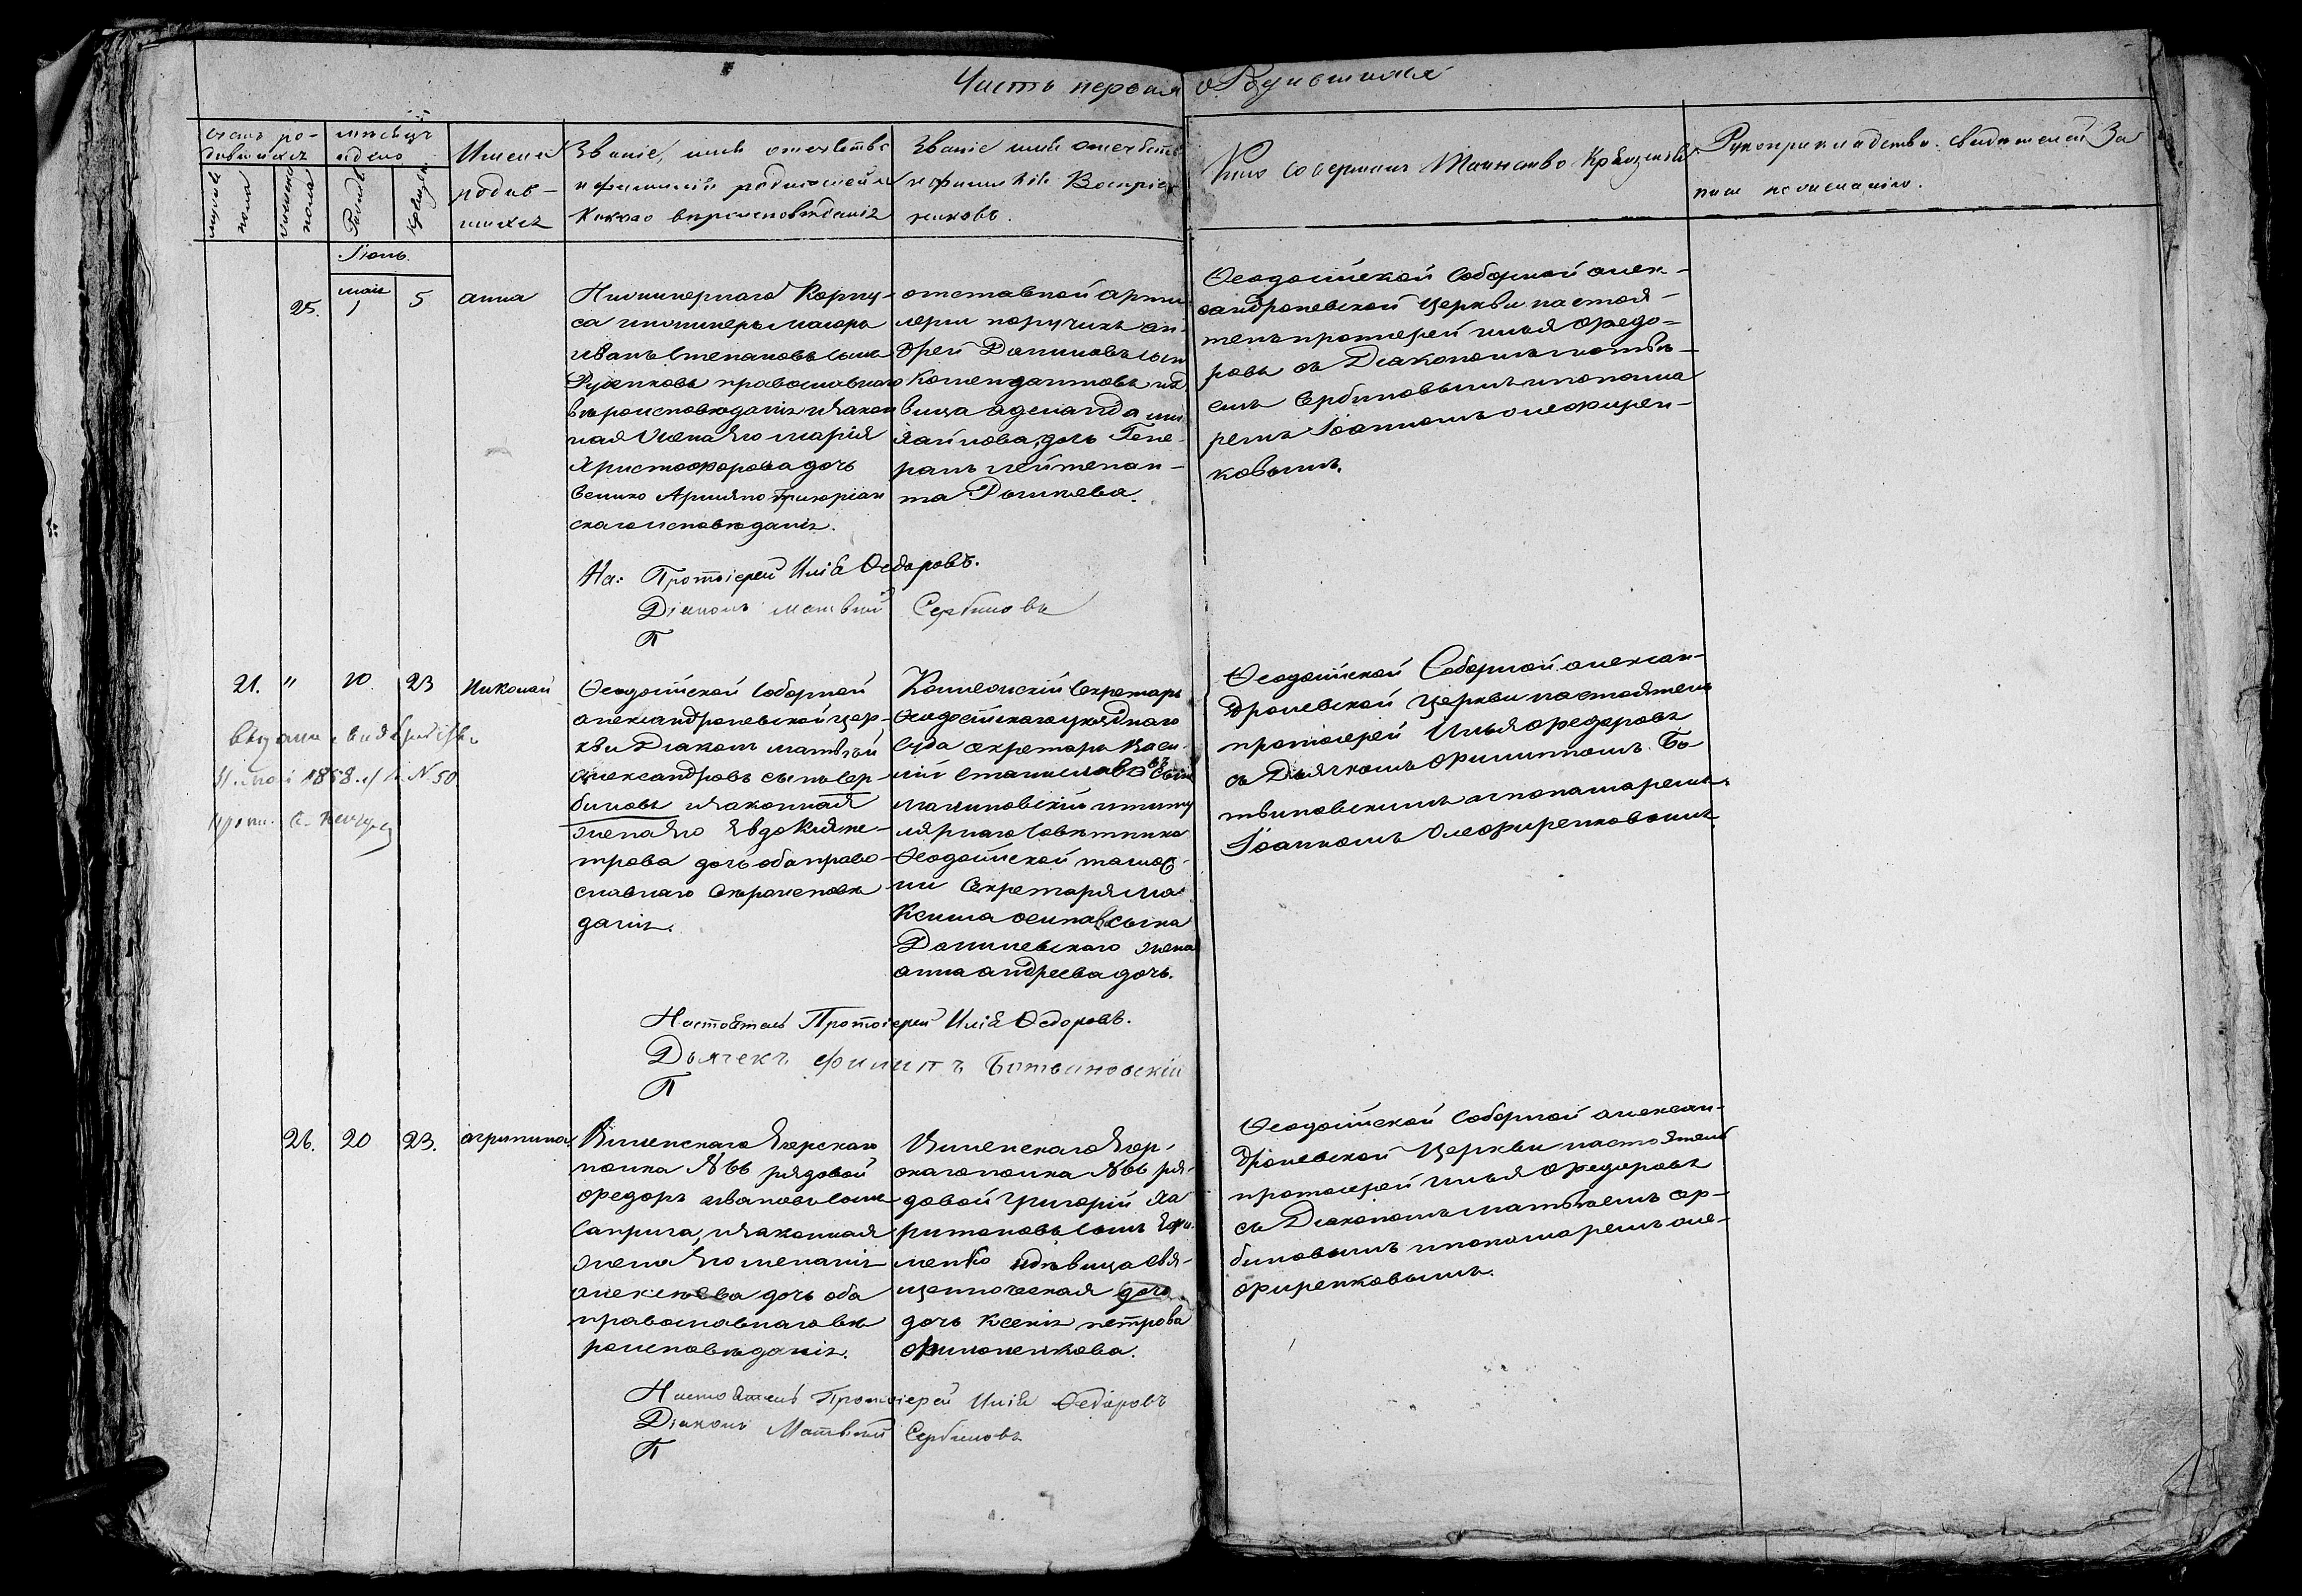 Часть первая о Родившихся
Счетъ ро-
дившихся
мужеска
пола
женска
пола
мѣсяцъ
и день
Рожденія
Крещенія
Имена
родив-
шихся
Званіе, имя отечество
и фамилія родителей и
какого вѣроисповѣданія
Званіе имя отечество
и фамилія Воспріем-
никовъ.
Кто совершалъ Таинство Крещенія
Рукоприкладство свидѣтелей За
писи по желанію.
Іюнь.
25.
маія
1
5
анна
Инжинернаго Корпу-
са инжинеръ маіоръ
иванъ Степановъ сынъ
православнаго
вѣроисповѣданія и закон
ная жена Его марія
Христофорова дочь
Армяно Григоріан
скаго исповѣданія.
отставной арти-
леріи поручикъ ан-
дрей Даниловъ сынъ
Комендантовъ и дѣ
вица аделаида ми
хайлова, дочь Гене-
ралъ лейтенан-
та
Ѳеодосійской Соборной алек-
сандроневской Церкви настоя-
тель протоіерей илья Федо-
ровъ съ Діакономъ матвѣ-
емъ Сербиновымъ и понома
ремъ Іоанномъ олефирен-
ковымъ.
На: Протоіерей Илія Ѳедоровъ.
Діаконъ Матвѣй Сербиновъ
П
21. " 10. 23 Николай
Выдано свидѣтельс.
1858. г/ N. 50.
Ѳеодосійской Соборной
александроневской цер-
кви Діаконъ матвѣй
Александровъ сынъ Сер-
биновъ и законная
жена Его Евдокія пе-
трова дочь оба право-
славнаго вѣроисповѣ
данія.
Коллежскій Секретарь
Ѳеодосійскаго уѣзднаго
Суда секретарь Васи-
лій Станиславовъ сынъ
малиновскій и титу
лярнаго Совѣтника
Ѳеодосійской тамож-
ни Секретаря ма
ксима осипова сына
Данилевскаго жена
анна андреева дочь.
Ѳеодосійской Соборной алексан-
дроневской Церкви настоятель
протоіерей Илья Федоровъ
съ Дьячкомъ Филиппомъ Бо-
твиновскимъ и пономаремъ
Іоанномъ Олефиренковымъ.
Настоятель Протоіерей Илія Ѳедоровъ.
Дьячекъ Филипъ Ботвиновскій
П
26. 20 23. агрипина
Виленскаго Егерскаго
полка №6ъ рядовой
Федоръ ивановъ сынъ
Саприга, и законная
жена Его меланія
алексѣева дочь оба
православнаго вѣ
роисповѣданія.
Виленскаго Егер-
скаго полка №6ъ ря-
довой Григорій Ха
ритоновъ сынъ Ефи-
менко и дѣвица свя-
щенническая дочь
дочь Ксенія петрова
Филоненкова.
Ѳеодосійской Соборной алексан-
дроневской Церкви настоятель
протоіерей илья Федоровъ
съ Діакономъ матвѣемъ сер-
биновымъ и пономаремъ оле-
фиренковымъ.
Настоятель Протоіерей Илія Ѳедоровъ
Діаконъ Матвѣй Сербиновъ
П